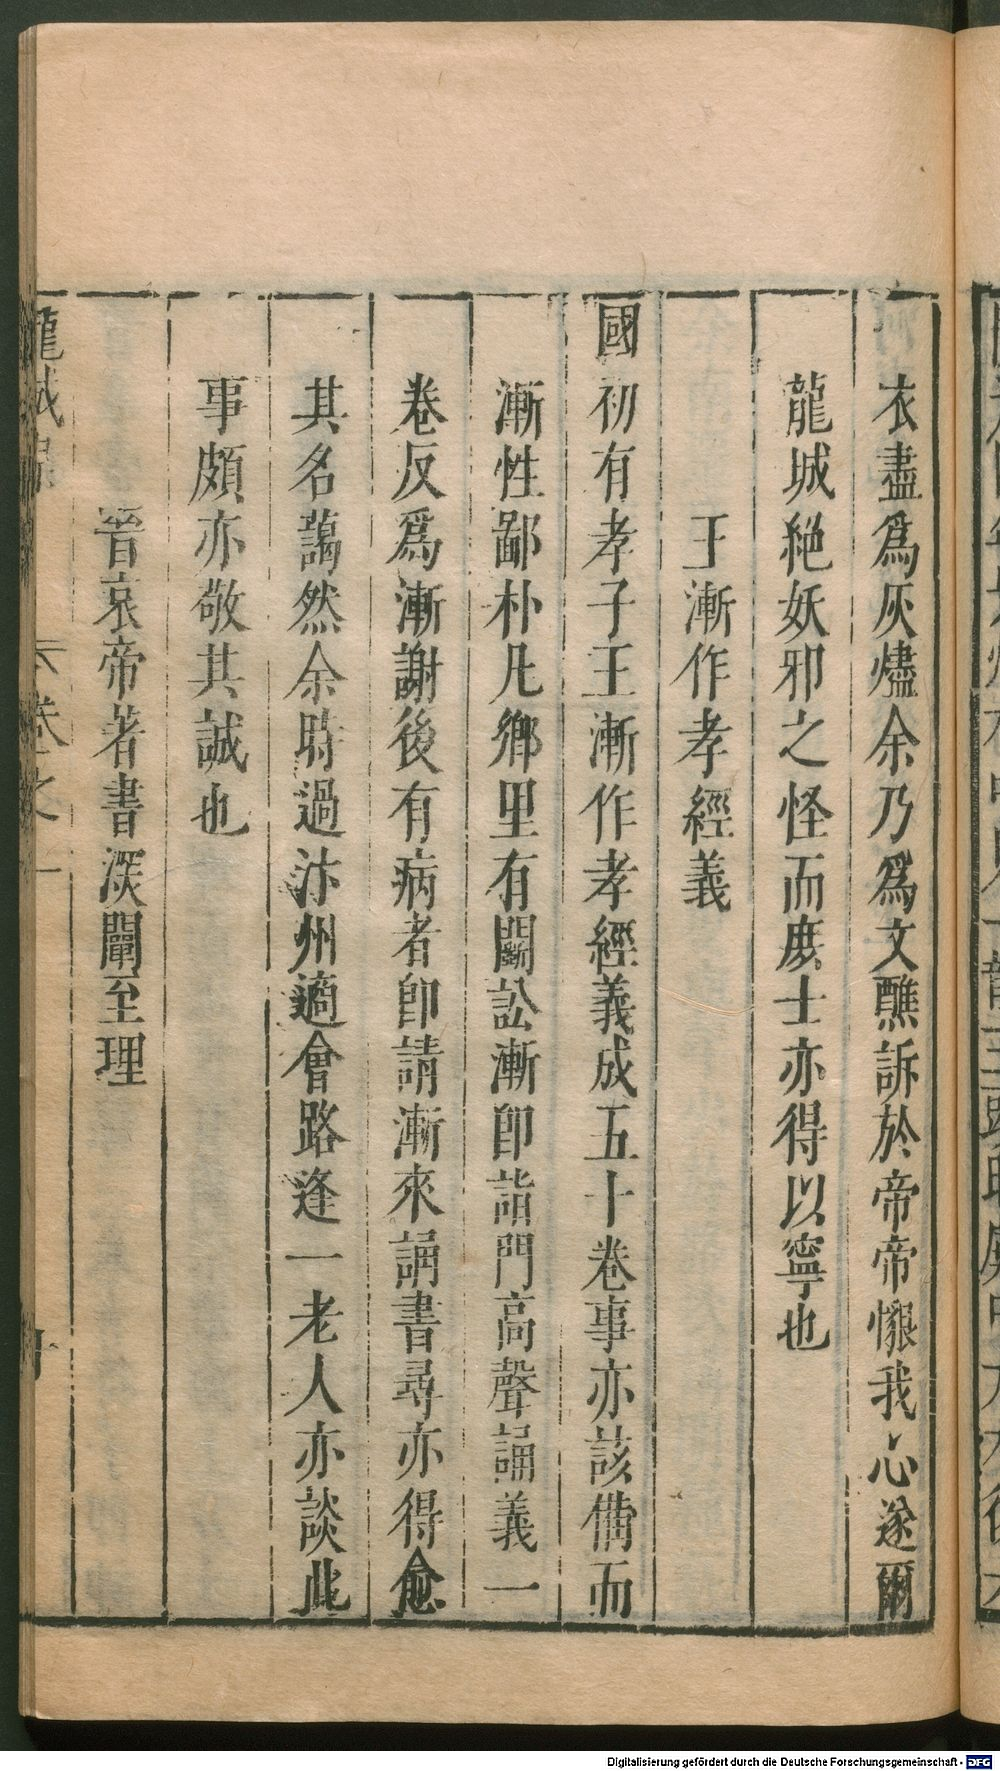 衣盡爲灰燼余乃爲文醮訴於帝帝懇我心遂爾
龍城絕妖邪之怪而庶士亦得以寧也
王漸作孝經義
國初有孝子王漸作孝經義成五十卷事亦該備而
漸性鄙朴凡鄉里有鬬訟漸卽詣門高聲誦義一
卷反爲漸謝後有病者卽請漸來誦書尋亦得愈
其名藹然余時過汴州適會路逢一老人亦談此
事頗亦敬其誠也
晉哀帝著書深闡至理
龍城 卷之一
Digitalisierung gefördert durch die Deutsche Forschungsgemeinschaft - DFG